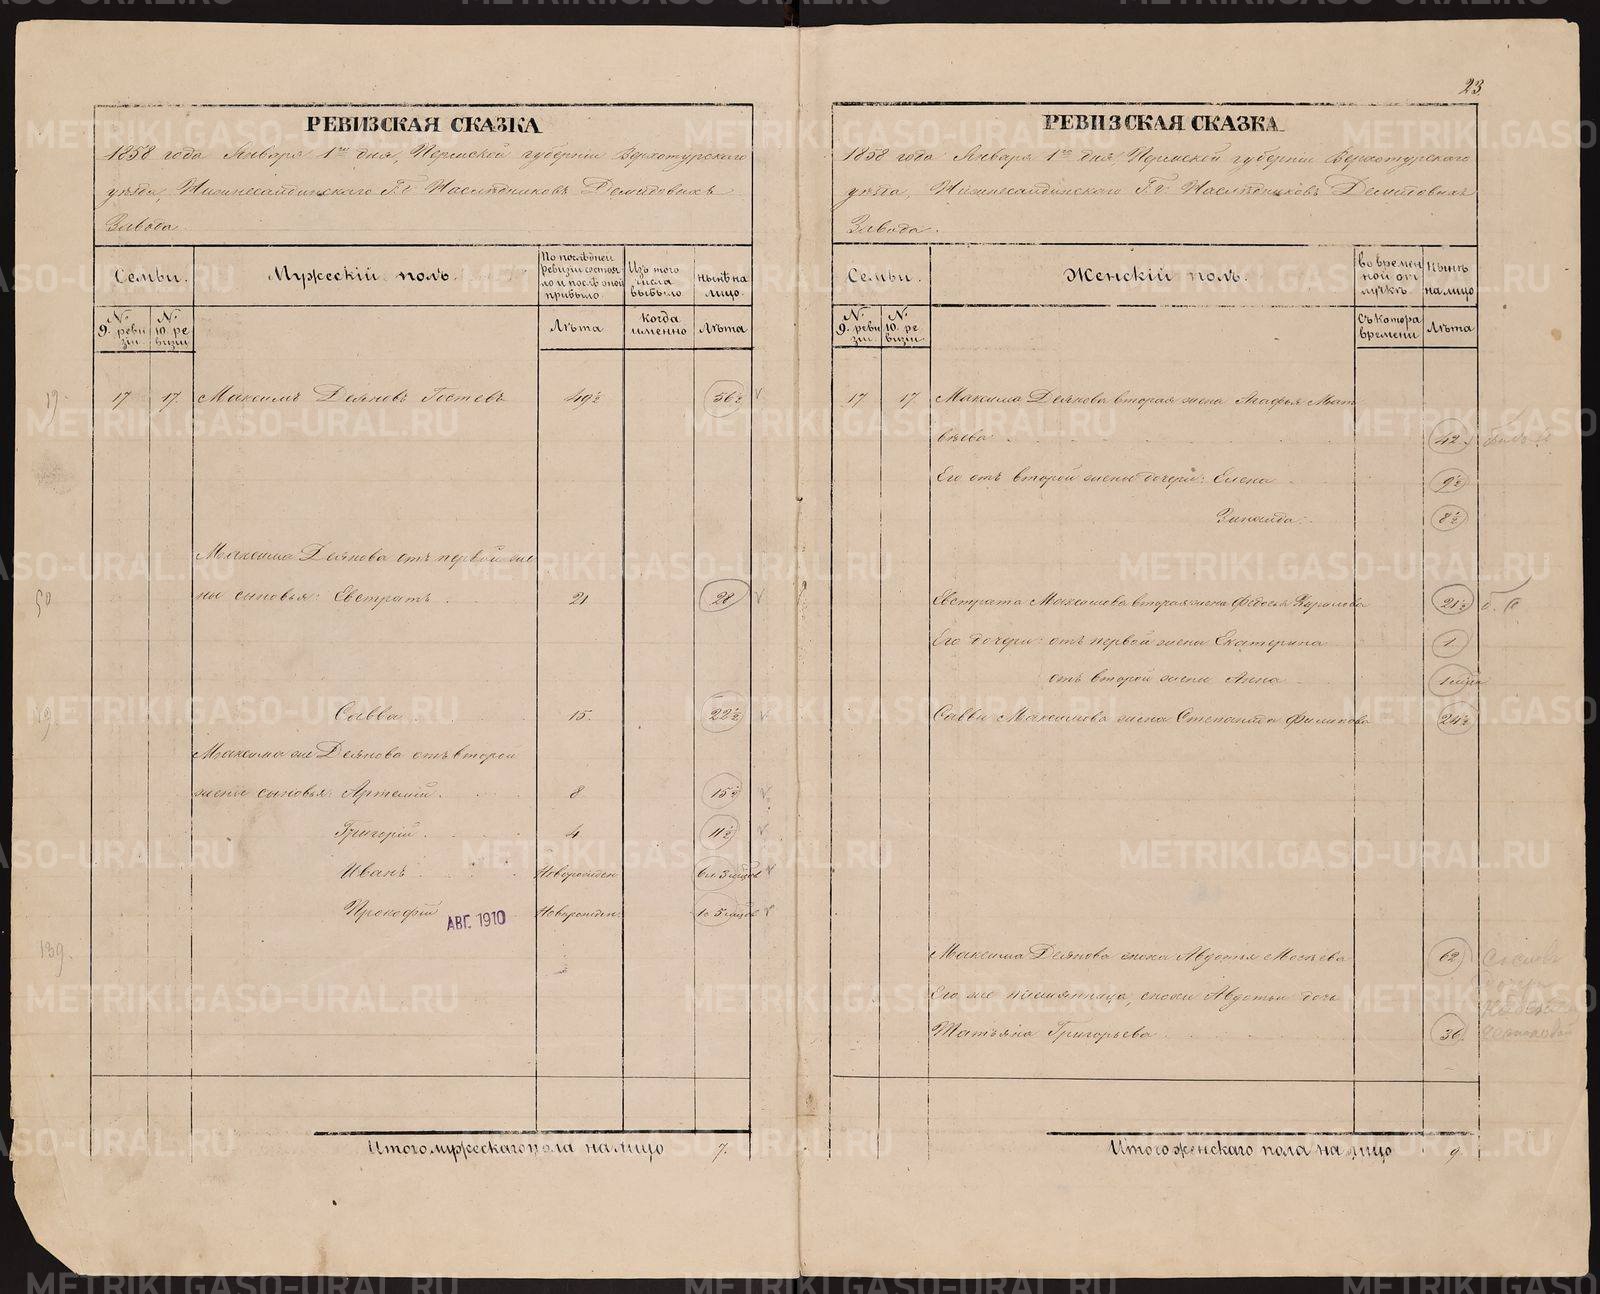 23
РЕВИЗСКАЯ СКАЗКА
1858 года Января 1го дня, Пермской губернии Верхотурского
уѣзда, Нижнесалдинскаго Г.г. Наслѣдниковъ Демидовыхъ
Завода.
Семьи.
Мужескій полъ.
По послѣдней ревизіи состояло и послѣ оной прибыло
Изъ того числа выбыло
нынѣ на лицо.
№ 9. ревизіи
№ 10. ревизіи
Лѣта
когда именно
Лѣта
19.
17
17.
Максимъ Деяновъ Гостевъ
49½
56½
Максима Деянова отъ первой же
ны сыновья: Евстратъ
21
28
Савва
15.
22½
Максима же Деянова отъ второй
жены сыновья: Артемій.
8
15½
Григорій.
4
11½
Иванъ
Новорожден
6 л. 3 мѣсяцов
Прокофій
Новорожден.
1 г. 5 мѣсяцов
АВГ. 1910
139.
Итого мужескаго пола на лицо
7.
РЕВИЗСКАЯ СКАЗКА
1858 года Января 1го дня, Пермской губернии Верхотурского
уѣзда, Нижнесалдинскаго Г.г. Наслѣдниковъ Демидовыхъ
Завода.
Семьи.
Женскій полъ.
во временной отлучкѣ
нынѣ на лицо
№ 9. ревизіи
№ 10. ревизіи
Съ котора времени
Лѣта
17
17
Максима Деянова вторая жена Агафья Мат
вѣева
42
Его отъ второй жены дочери: Елена
9½
Зинаида.
8½
Евстрата Максимова вторая жена Федосья Кирилова
21½
Его дочери: отъ первой жены Екатерина
1.
отъ второй жены Анна
Саввы Максимова жена Степанида Филипова
24½
Максима Деянова сноха Авдотья Мосѣева
62
Его же племянница, снохи Авдотьи дочь
Татьяна Григорьева
36.
Итого женскаго пола на лицо
9
METRIKI.GASO-URAL.RU